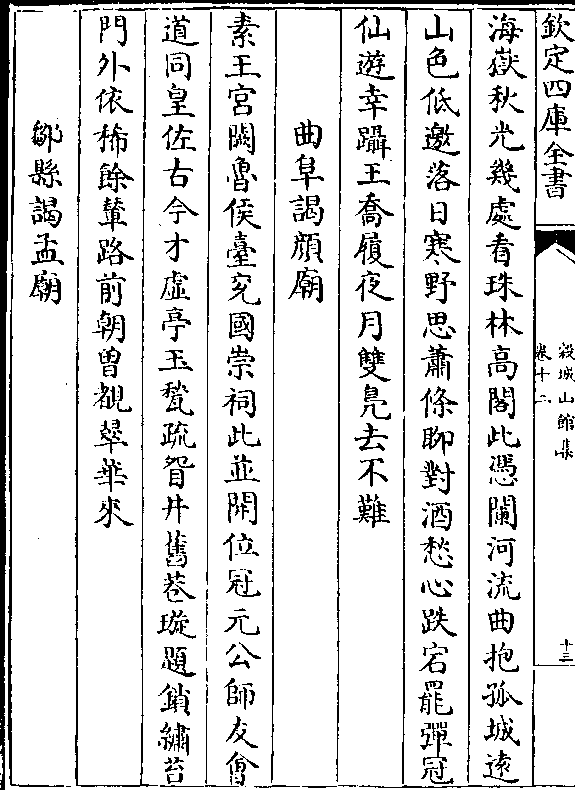 欽定四庫全書
穀城山館集
卷十二
十三
海嶽秋光幾處看珠林高閣此憑闌河流曲抱孤城遠
山色低邀落日寒野思蕭條聊對酒愁心跌宕罷彈冠
仙遊幸躡王喬履夜月雙鳧去不難
曲阜謁顔廟
素王宮闕魯侯臺兖國崇祠此並開位冠元公師友㑹
道同皇佐古今才虚亭玉甃疏眢井舊巷璇題鎖繡苔
門外依稀餘輦路前朝曽覩翠華來
鄒縣謁孟廟